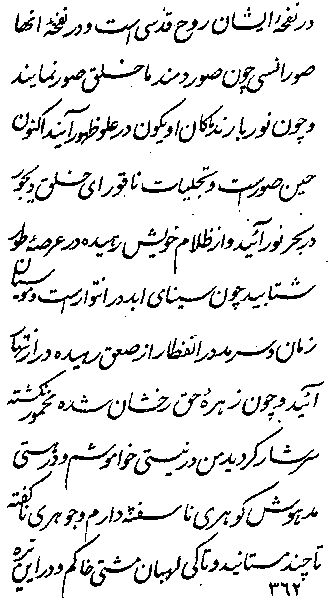 در نفخهٔ ایشان روح قدسی است و در نفخهٔ انها
صور انسی چون صور دمند ما خلق صور نمایند
و چون نور بارند یکان او یکون در علو ظهور آیند اکنون
حین صور است و تجلیات ناقور ای خلق دیجور
در بحر نور آئید و از ظلام خویش رهیده در عرصهٔ طور
شتابید چون سینای ابد در انوار است و موسیان
زمان و سرمد در انفطار از صعق رهیده در ارتباک
آئید و چون زهرهٔ حق رخشان شده مخمور نگشته
سرشار کردید من در نیستی خواموشم و در هستی
مدهوش کوهری ناسفته دارم و جوهری ناکفته
تا چند مستانید و تا کی لهبان مشتی خاکم و در این تیره
۳۶۲